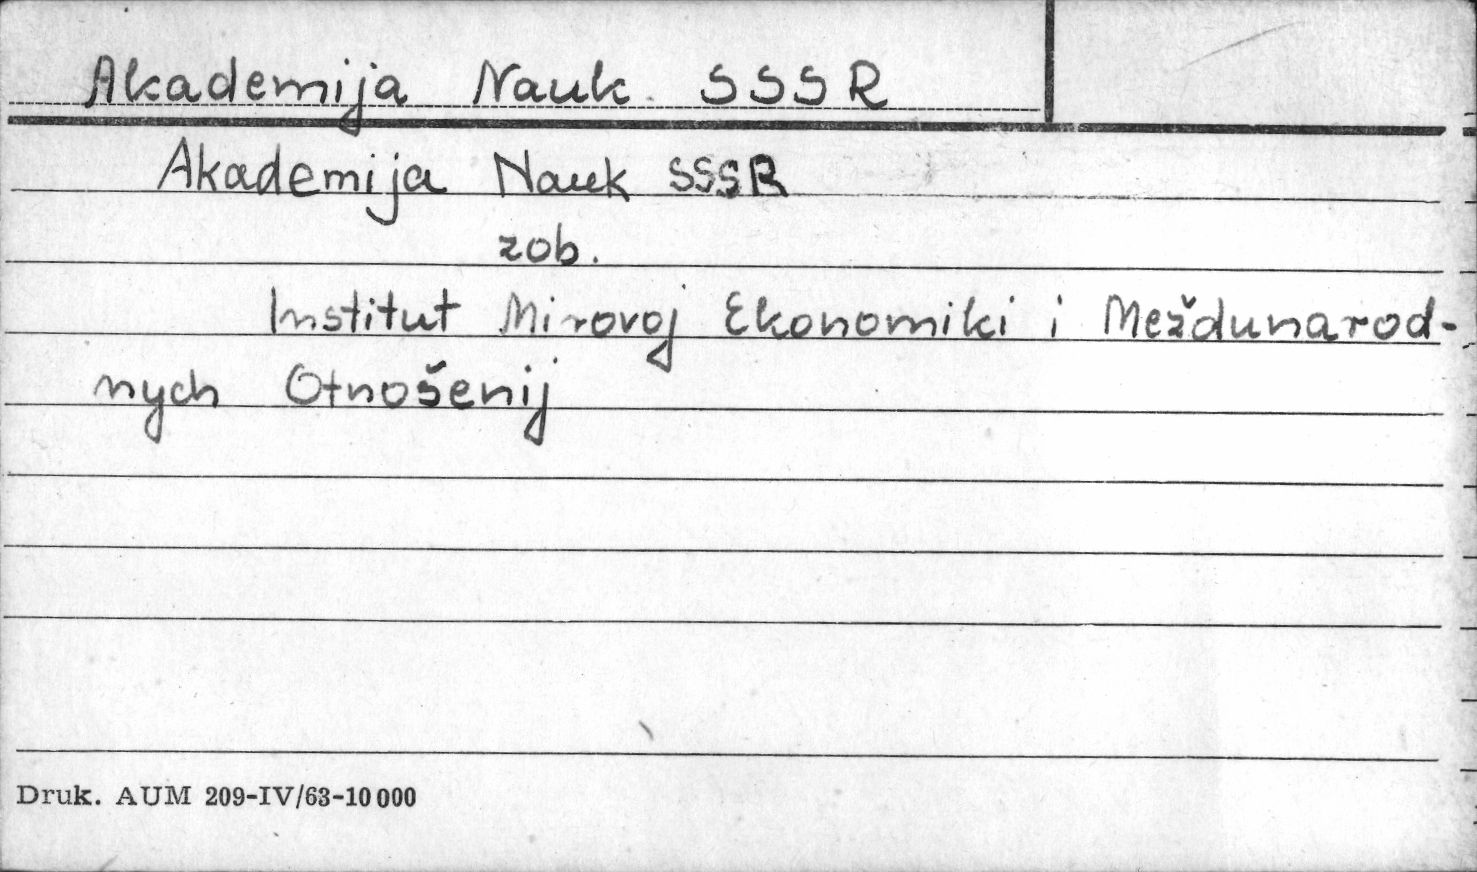 Akademija Nauk SSSR
Akademija Nauk SSSR
zob.
Institut Mirovoj Ekonomiki i Meždunarod-
nych Otnošenij
Druk. AUM 209-IV/63-10000